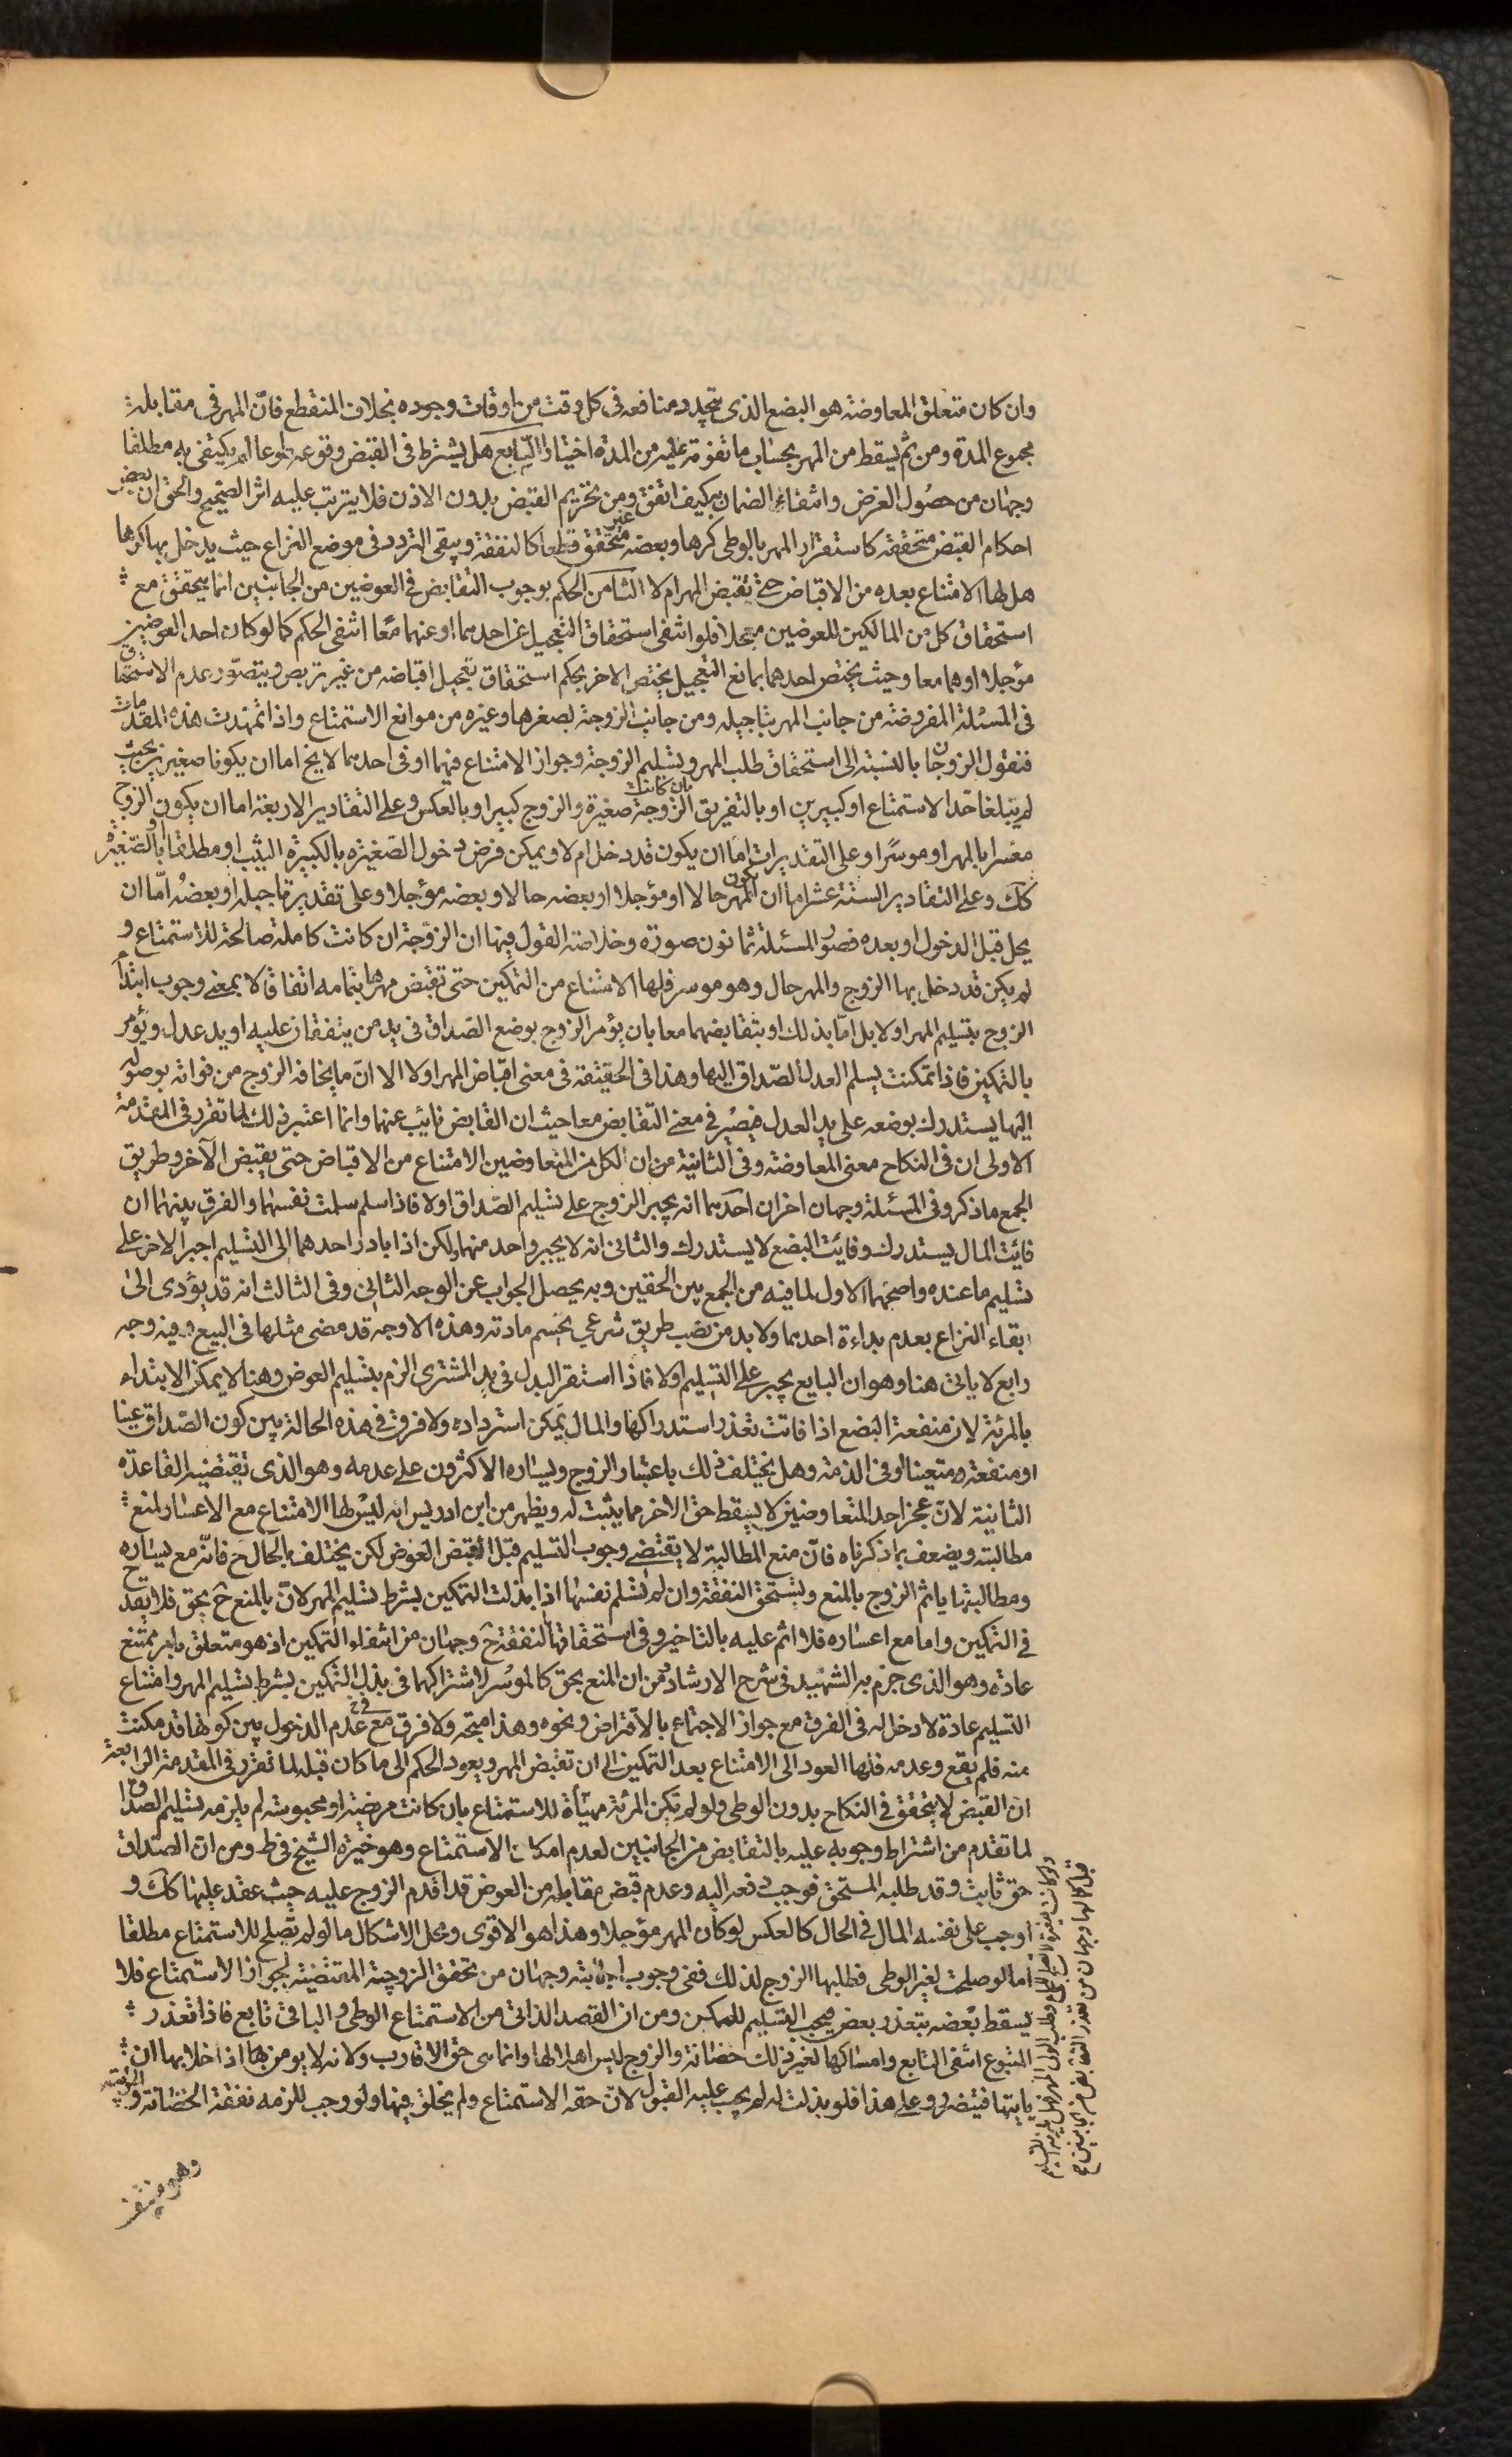 وان كان متعلق المعاوضة هو البضع الذى يتجدد منافعه فى كل وقت من اوقات وجوده بخلاف المنقطع فان المهر فى مقابلة
مجموع المدة ومن ثم يسقط من المهر بحساب ما تفوته عليه من المدة اختيارا السّابع هل يشترط فى القبض وقوعه طوعا ام يكتفى به مطلقا
وجهان من حصول الغرض وانتفاء الضمان به كيف اتفق ومن تحريم القبض بدون الاذن فلا يترتب عليه اثر الصحيح والحق ان بعض
احكام القبض متحققة كاستقرار المهر بالوطى كرها وبعضه غير متحقق قطعا كالنفقة ويبقى التردد فى موضع النزاع حيث يدخل بها كرها
هل لها الامتناع بعده من الاقباض حتى تقبض المهر ام لا الثامن الحكم بوجوب التقابض فى العوضين من الجانبين انما يتحقق مع
استحقاق كل من المالكين للعوضين معجلا فلو انتفى استحقاق التعجيل عن احدهما او عنهما معًا انتفى الحكم كما لو كان احد العوضين
مؤجلا او هما معا وحيث يختص احدهما بمانع التعجيل يختص الاخر بحكم استحقاق تعجيل اقباضه من غير تربص ويتصوّر عدم الاستحقاق
فى المسئلة المفروضة من جانب المهر بتاجيله ومن جانب الزوجة لصغرها وغيره من موانع الاستمتاع واذا تمهدت هذه المقدمات
فنقول الزوجان بالنسبة الى استحقاق طلب المهر وتسليم الزوجة وجواز الامتناع فيهما او فى احدهما لا يخ اما ان يكونا صغيرين بحيث
لم يبلغا حد الاستمتاع او كبيرين او بالتفريق بان كانت الزوجة صغيرة والزوج كبيرا او بالعكس وعلى التقادير الاربعة اما ان يكون الزوج
معسرا بالمهر او موسرًا وعلى التقديرات اما ان يكون قد دخل ام لا ويمكن فرض دخول الصّغيره بالكبيرة الثيب او مطلقا او بالصّغيرة
كك وعلى التقادير الستة عشر اما ان يكون المهر حالا او مؤجلا او بعضه حالا وبعضه مؤجلا وعلى تقدير تاجيله او بعضهُ امّا ان
يحل قبل الدخول او بعده فصُور المسئلة ثمانون صورة وخلاصة القول فيها ان الزوّجة ان كانت كاملة صالحة للاستمتاع و
لم يكن قد دخل بها الزوج والمهر حال وهو موسر فلها الامتناع من التمكين حتى تقبض مهرها بتمامه اتفاقا لا بمعنى وجوب ابتداء
الزوج بتسليم المهر اولا بل امّا بذلك او بتقابضهما معا بان يؤمر الزوج بوضع الصّداق فى يد من يتفقان عليه او يد عدل وتؤمر
بالتمكين فاذا تمكنت يسلم العدل الصّداق اليها وهذا فى الحقيقة فى معنى اقباض المهر اولا الا انّ ما يخافه الزوج من فواته بوصوله
اليها يستدرك بوضعه على يد العدل فيصير فى معنى التقابض معا حيث ان القابض نائب عنهما وانما اعتبر ذلك لما تقرر فى المقدمة
الاولى ان فى النكاح معنى المعاوضة وفى الثانية من ان لكل من المتعاوضين الامتناع من الاقباض حتى يقبض الآخر وطريق
الجمع ما ذكر وفى المسئلة وجهان اخران احدهما انه يجبر الزوج على تسليم الصّداق اولا فاذا سلم سلمت نفسها والفرق بينهما ان
فائت المال يستدرك وفائت البضع لا يستدرك والثانى انه لا يجبر واحد منهما ولكن اذا بادر احدهما الى التسليم اجبر الاخر على
تسليم ما عنده واصحّها الاول لما فيه من الجمع بين الحقين وبه يحصل الجواب عن الوجه الثانى وفى الثالث انه قد يؤدى الى
بقاء النزاع بعدم بداءة احدهما ولا بد من نصب طريق شرعى يحسم مادته وهذه الاوجه قد مضى مثلها فى البيع وفيه وجه
رابع لا ياتى هنا وهو ان البايع يجبر على التسليم اولا فاذا استقر البدل فى يد المشترى الزم بتسليم العوض وهنا لا يمكن الابتداء
بالمرئة لان منفعة البضع اذا فاتت تعذر استدراكها والمال يمكن استرداده ولا فرق فى هذه الحالة بين كون الصّداق عينا
او منفعة ومتعينا او فى الذمة وهل يختلف ذلك باعتبار الزوج ويساره الاكثرون على عدمه وهو الذى تقتضيه القاعدة
الثانية لان عجز احد المتعاوضين لا يسقط حق الاخر مما يثبت له ويظهر من ابن ادريس انه ليس لها الامتناع مع الاعسار لمنع
مطالبته ويضعف بما ذكرناه فانّ منع المطالبة لا يقتضى وجوب التسليم قبل قبض العوض لكن يختلف الحال ح فانّه مع يساره
ومطالبتها ياثم الزوج بالمنع وتستحق النفقة وان لم تسلم نفسها اذا بذلت التمكين بشرط تسليم المهر لان المنع ح بحق فلا يقدح
فى التمكين واما مع اعساره فلا اثم عليه بالتاخير وفى استحقاقها النفقة ح وجهان من انتفاء التمكين اذ هو متعلق بامر ممتنع
عادة وهو الذى جزم به الشهيد فى شرح الارشاد ومن ان المنع بحق كالموسر لاشتراكهما فى بذل التمكين بشرط تسليم المهر وامتناع
التسليم عادة لا دخل له فى الفرق مع جواز الاجتماع بالاقتراض ونحوه وهذا متجه ولا فرق مع عدم الدخول بين كونها قد مكنت
منه فلم يقع وعدمه فلها العود الى الامتناع بعد التمكين الى ان تقبض المهر ويعود الحكم الى ما كان قبله لما تقرر فى المقدمة الرابعة
ان القبض لا يتحقق فى النكاح بدون الوطى ولو لم تكن المرئة مهيأة للاستمتاع بان كانت مريضة او محبوسة لم يلزمه تسليم الصداق
لما تقدم من اشتراط وجوبه عليه بالتقابض من الجانبين لعدم امكان الاستمتاع وهو خيرة الشيخ فى ط ومن ان الصّداق
حق ثابت وقد طلبه المستحق فوجب دفعه اليه وعدم قبض مقابله من العوض قد اقدم الزوج عليه حيث عقد عليها كك و
اوجب على نفسه المال فى الحال كالعكس لو كان المهر مؤجلا وهذا هو الاقوى ومحل الاشكال ما لو لم تصلح للاستمتاع مطلقا
اما لو صلحت لغير الوطى فطلبها الزوج لذلك ففى وجوب اجابته وجهان من تحقق الزوجية المقتضية لجواز الاستمتاع فلا
يسقط بعضه بتعذر بعض فيجب التسليم للممكن ومن ان القصد الذاتى من الاستمتاع الوطى والباقى تابع فاذا تعذر
المتبوع انتفى التابع وامساكها لغير ذلك حضانة والزوج ليس اهلا لها وانما هى حق الاقارب ولانه لا يومن هنا اذا خلا بها ان
ياتيها فتتضرر وعلى هذا فلو بذلت له لم يجب عليه القبول لانّ حقه الاستمتاع ولم يخلق فيها ولو وجب للزمه نفقة الحضانة والتربية
وهو منتف
ولو كانت صغيرة لا تصلح للجماع وطلب الولى المهر فهل يلزمه التسليم
قبل كمالها وجهان من تعذر التقابض من الجانبين